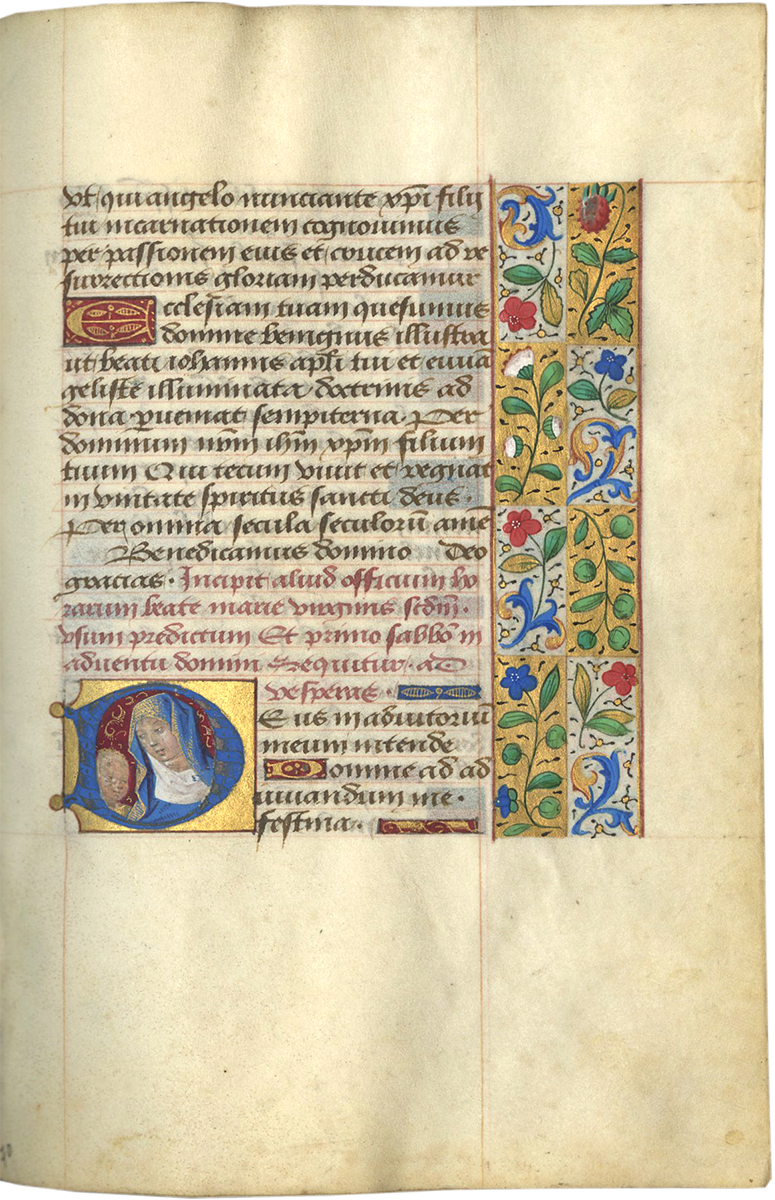 vt qui angelo nunciante xp̄i filij
tui incarnationem cognouimus
per passionem eius et crucem ad re
surrectionis gloriam perducamur
Ecclesiam tuam quesumus
domine benignus illustra
ut beati iohannis apl̄i tui et euuā
geliste illuminata doctrinis ad
dona perueniat sempiterna. Per
dominum nr̄m ihm̄ xp̄m filium
tuum Qui tecum viuit et regnat
in vnitate spiritus sancti deus.
Per omnia secula seculorū amē
Benedicamus domino Deo
gracias. Incipit aliud officium ho
rarum beate marie virginis scdm̄.
vsum predictum Et primo sabbō in
aduentu domini Sequitur. ad
vesperas.
Deus in adiutoriū
meum intende
Domine ad ad
iuuandum me.
festina.